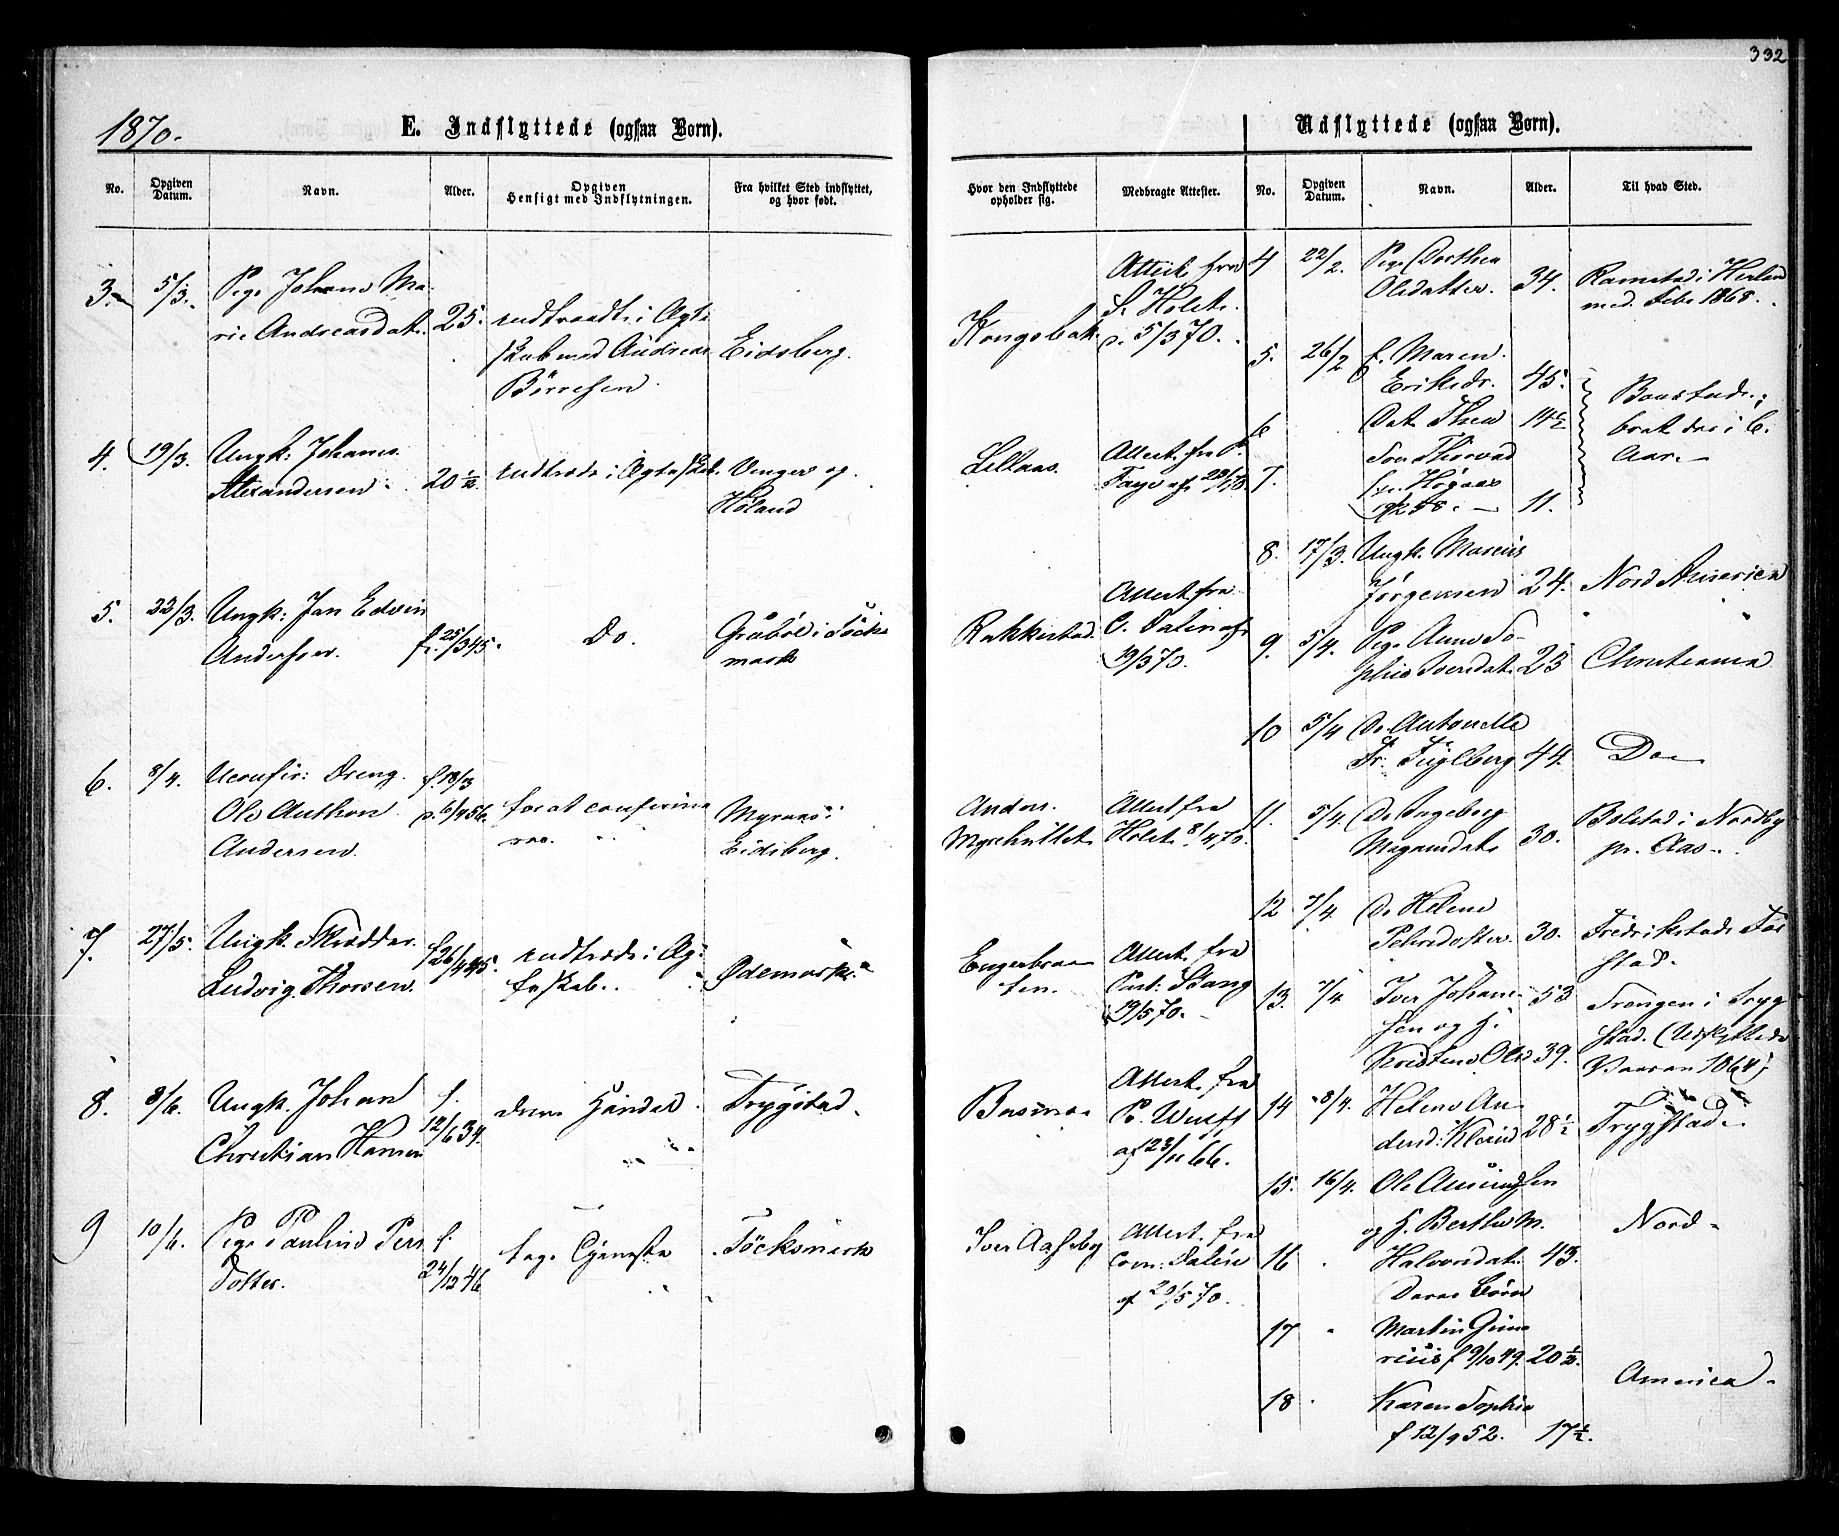 332
1870.
E. Indflyttede (ogsaa Børn).
No.
Opgiven Datum.
Navn.
Alder.
Opgiven Hensigt med Indflytningen.
Fra hvilket Sted indflyttet, og hvor født.
Hvor den Indflyttede opholder sig.
Medbragte Attester.
3.
5/3.
Pige Johanne Ma-
rie Andreasdat.
25.
indtraadte i Ægte
skab med Andreas
Børresen.
Eidsberg.
Attest fra
Holst
5/3 70.
4.
19/3.
Ungk: Johannes
Alexandersen.
20 1/2
indtræde i Ægteskab.
og
Høland
Lillaas.
Attest fra P.
5.
22/3.
Ungk: Jan Edvin
Andersen.
f. 25/3 45.
Do.
i Töcks
mark
Rakkestad.
Attest fra
C. Dalin af
19/3 70.
6.
8/4.
Uconfir: Dreng
Ole Anthon
Andersen.
for at confirme
res.
i
Eidsberg.
Anders
Myrehullet
Attest fra
Holst 8/4 70.
7.
27/5.
Ungk. Skrædder
Ludvig Thorsen.
f 26/4 45.
indtræde i Æg
teskab.
Ødemark.
Engerbraa
ten.
Attest fra
Stang
19/5 70.
8.
8/6.
Ungk. Johan
Christian Hansen
f.
12/6 34.
drive Handel
Trygstad.
Attest fra
P. Wulff
af 23/11 66.
9
10/6.
Pige Pauline Pers
Dotter.
f.
24/12 46
tage Tjeneste
Töcksmark
Iver Aaseby
Attest fra
Com: Dalin
af 20/5 70.
Udflyttede (ogsaa Børn).
No.
Opgiven Datum.
Navn.
Alder.
Til hvad Sted.
4
22/2.
Pige Dorthea
Olsdatter.
34.
Ramstad i
med. Febr 1868.
5.
26/2
f. Maren
Eriksdr.
45.
6
Dat. Thea
14 1/2
7.
Søn Thorvald
11.
i C.
Aar.
8.
17/3.
Ungk. Marius
Jørgensen
24.
Nord America
9.
5/4.
Pige Anne So-
phie Iversdat.
25
Christiania
10
5/4
Do Antonette
Fr. Fuglberg
44.
Do
11.
5/4.
Do Ingeborg
Magnusdat.
30.
Bolstad i Nordby
pr. Aas.
12
7/4.
Do Helene
30.
Fredrikstad
stad.
13.
7/4
Iver Johann-
sen og H.
53
39.
i Tryg
stad. (Udflyttede
Vaaren 1864)
14
8/4.
Helene An-
28 1/2
Trygstad.
15.
16/4.
Ole Amundsen
og H. Berthe M.
16
Halvorsdat:
43.
Deres Børn
17
Martin Gune
rius f 9/10 49.
20 1/2.
18
Karen Sophie
f 12/9 52.
17 1/2.
Nord-
America.